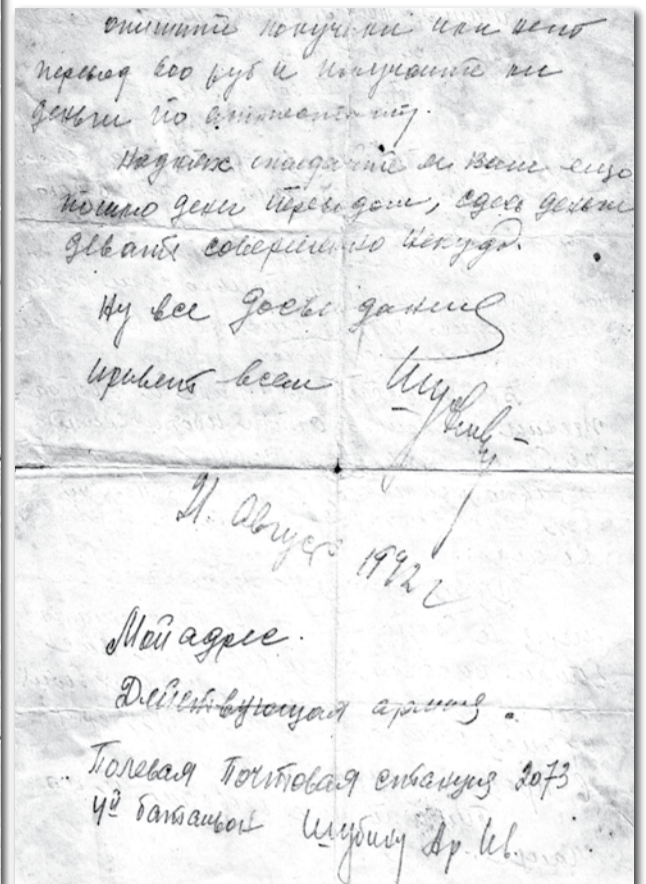 опишите получили или нет
перевод 600 руб и получаите ли
деньги по аттестату.
Надиях вам ещо
пошлю денег переводом, сдесь деньги
девать совершенно некуда.
Ну все досвидания
привет всем
21. Август 1942 г
Мой адрес.
Действующая армия.
Полевая Почтовая станция 2073
4й батальон Шубину Ар. Ив.